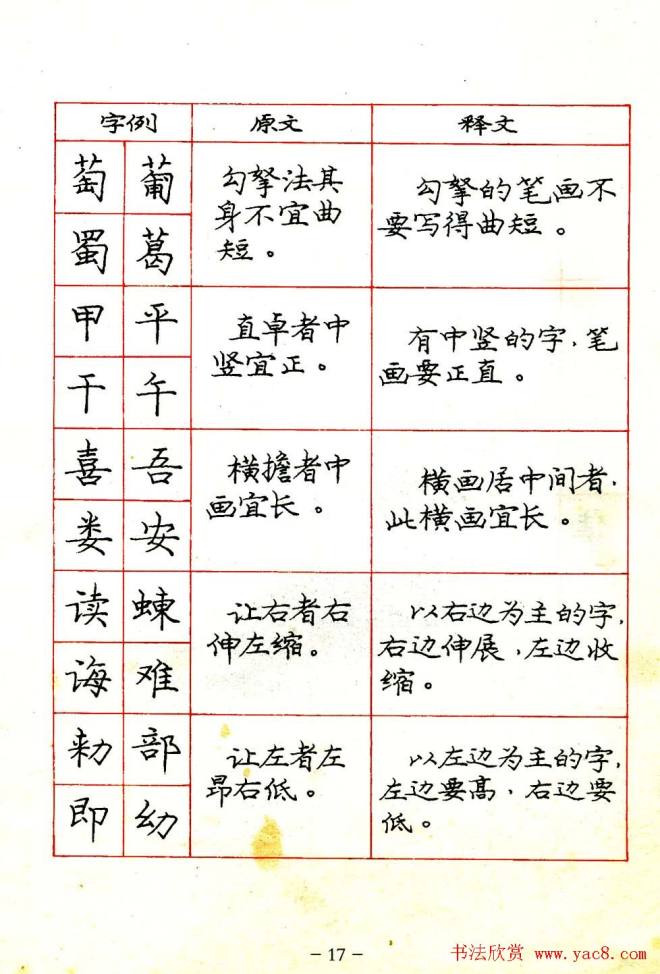 字例 原文 释文
萄 葡
蜀 葛
勾拏法其
身不宜曲
短。
勾拏的笔画不
要写得曲短。
甲 平
干 午
直卓者中
竖宜正。
有中竖的字,笔
画要正直。
喜 吾
娄 安
横担者中
画宜长。
横画居中间者,
此横画宜长。
读 蝀
诲 难
让右者右
伸左缩。
以右边为主的字,
右边伸展,左边收
缩。
勅 部
即 幼
让左者左
昂右低。
以左边为主的字,
左边要高,右边要
低。
- 17 -
书法欣赏 www.yac8.com